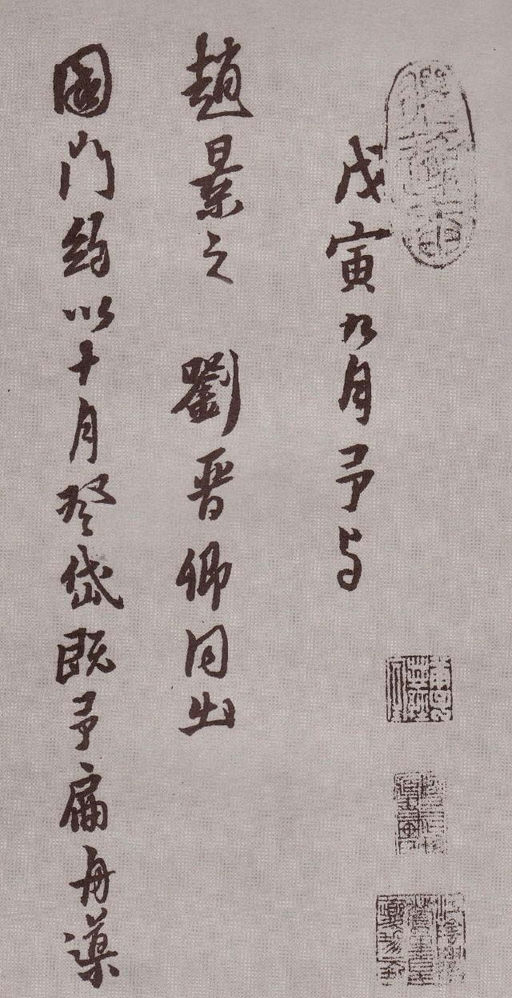 戊寅九月予与
趙景之 劉晋卿同出
國門約以十月登岱既予扁舟渡